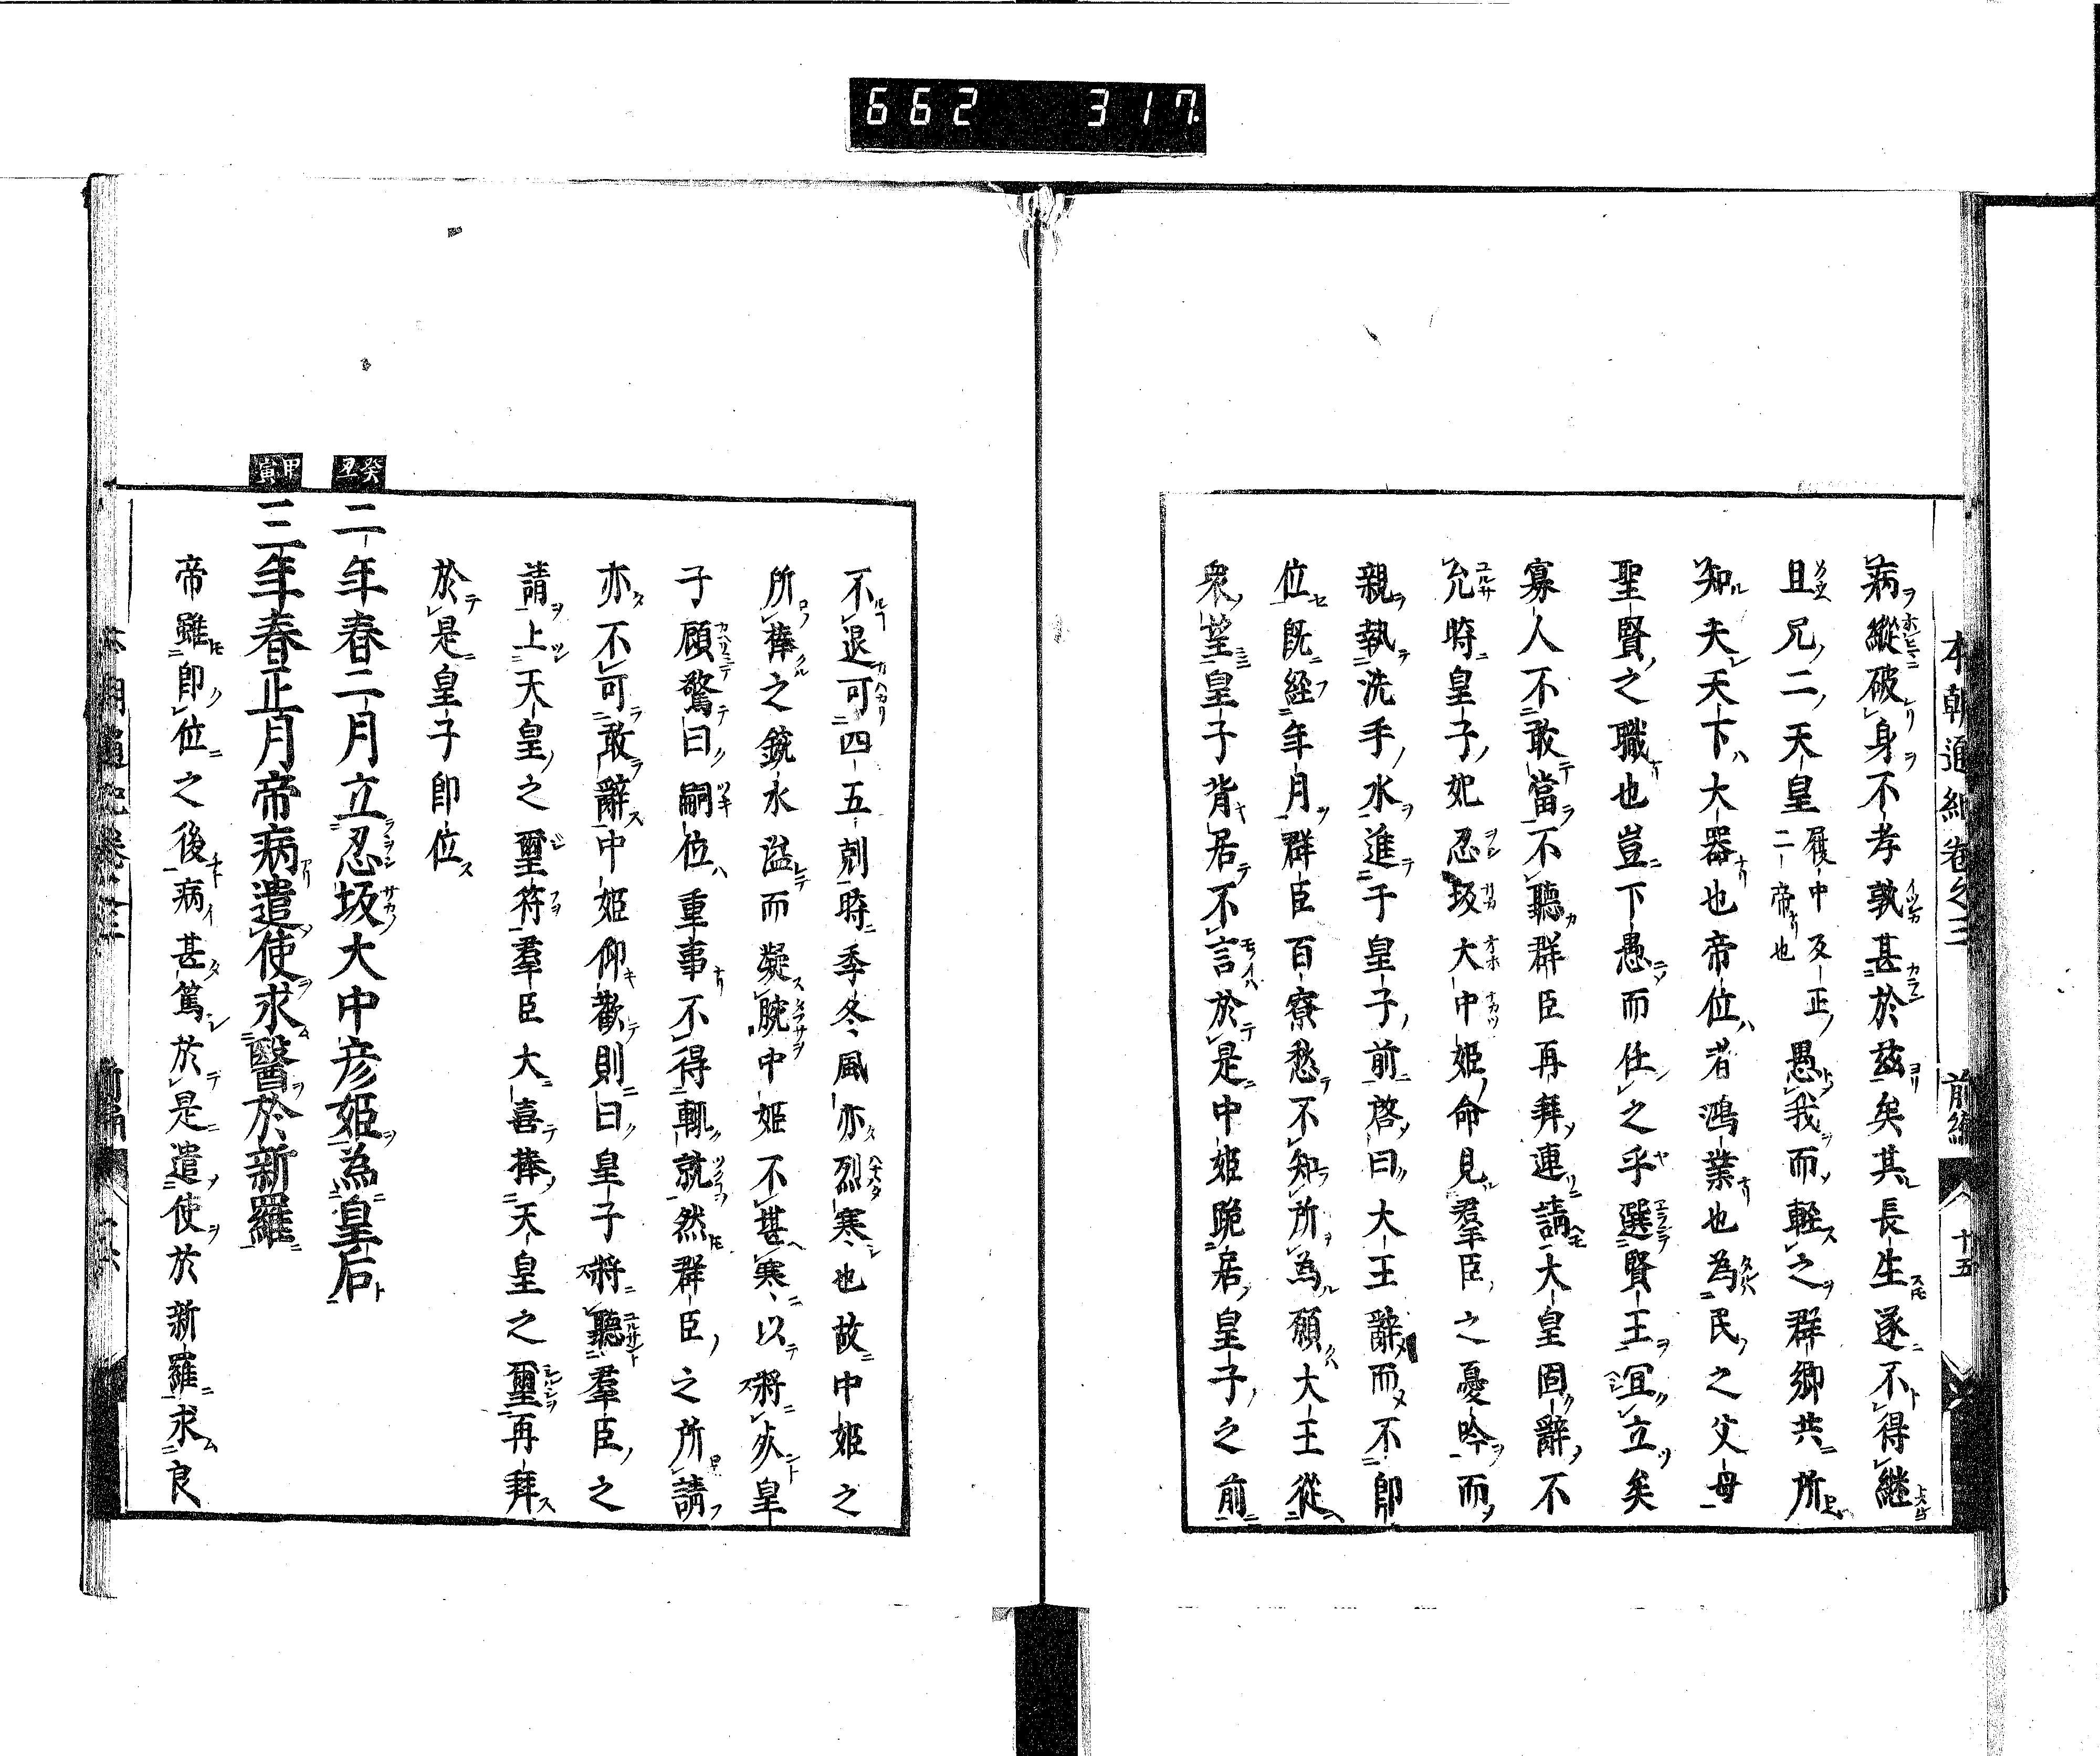 662 317
本朝通紀卷之三 前編 十五
病縱破身不孝孰甚於茲矣其長生遂不得繼
且兄二天皇履中反正二帝也愚我而輕之群卿共所
知夫天下大器也帝位者鴻業也為民之父母
聖賢之職也豈下愚而任之乎選賢王宜立矣
寡人不敢當不聽群臣再拜連請大皇固辭不
允時皇子妃忍坂大中姬命見羣臣之憂吟而
親執洗手水進于皇子前啓曰大王辭而不即
位既經年月群臣百寮愁不知所為願大王從
衆望皇子背居不言於是中姬跪居皇子之前
不退可四五剋時季冬風亦烈寒也故中姬之
所捧之鋺水溢而凝腕中姬不堪寒以將死皇
子顧驚曰嗣位重事不得輒就然群臣之所請
亦不可敢辭中姬仰歡則曰皇子將聽羣臣之
請上天皇之璽符羣臣大喜捧天皇之璽再拜
於是皇子即位
癸丑
二年春二月立忍坂大中彦姬為皇后
甲寅
三年春正月帝病遣使求醫於新羅
帝雖即位之後病甚篤於是遣使於新羅求良